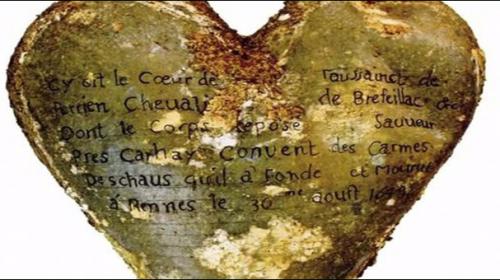 Cy Git le Cœur de Toussainct de
Perrien Cheuali de Brefeillac
Dont le Corps repose Sauueur
Pres Carhay Conuent des Carmes
Deschaus quil à Fondé et Mourut
à Rennes le 30 aoust